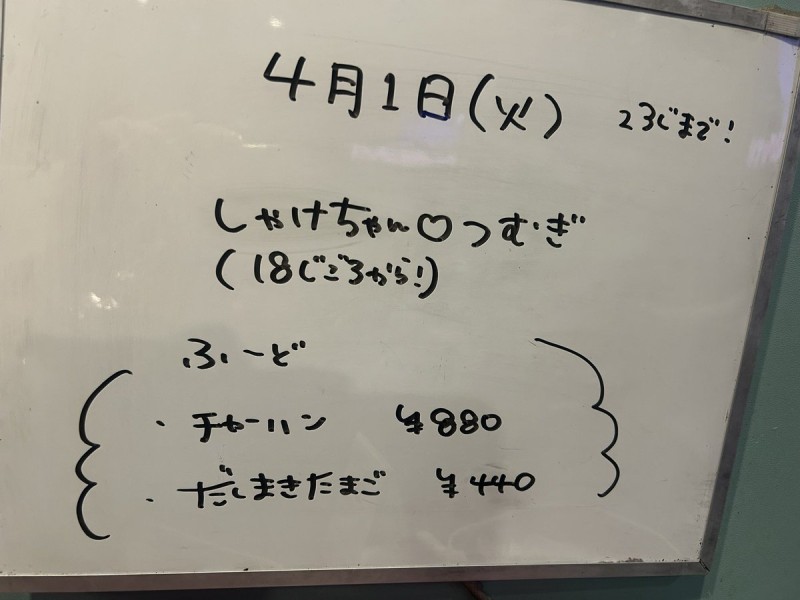 4月1日(火) 23じまで!
しゃけちゃん♡つむぎ
(18じごろから!)
ふーど
・チャーハン ¥880
・だしまきたまご ¥440